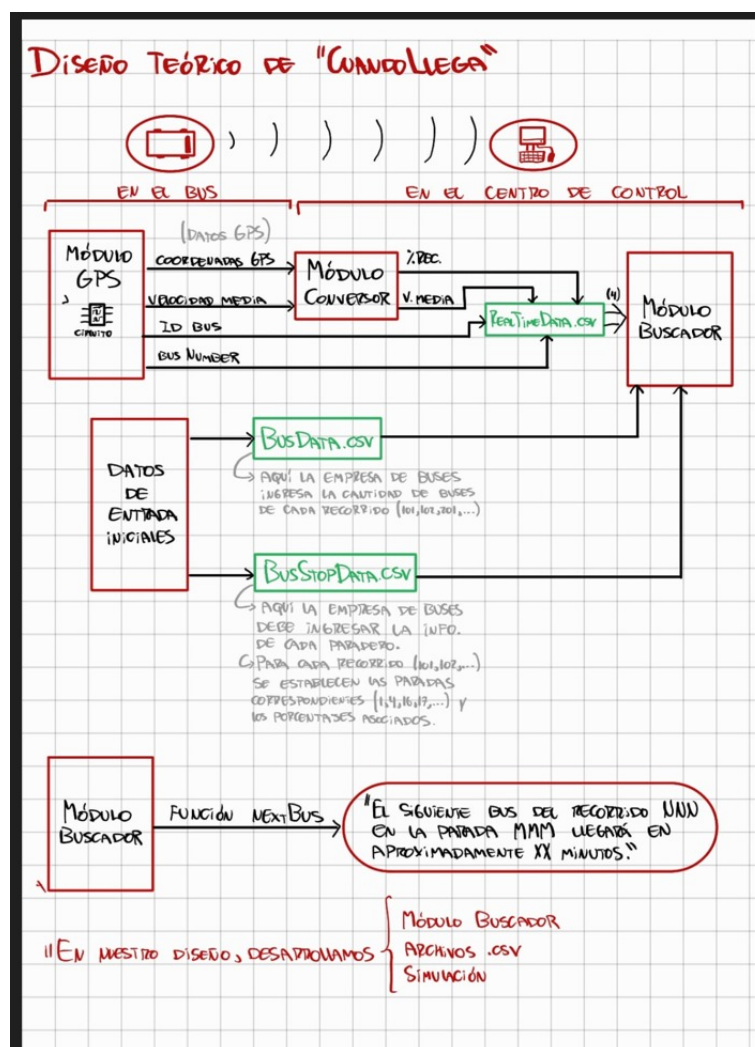 DISEÑO TEÓRICO DE "CUANDOLLEGA"
EN EL BUS
EN EL CENTRO DE CONTROL
(DATOS GPS)
MÓDULO
GPS
CIRCUITO
COORDENADAS GPS
VELOCIDAD MEDIA
ID BUS
BUS NUMBER
MÓDULO
CONVERSOR
%REC.
V. MEDIA
REALTIMEDATA.CSV
(4)
MÓDULO
BUSCADOR
DATOS
DE
ENTRADA
INICIALES
BUSDATA.CSV
AQUÍ LA EMPRESA DE BUSES
INGRESA LA CANTIDAD DE BUSES
DE CADA RECORRIDO (101,102,201,...)
BUSSTOPDATA.CSV
AQUÍ LA EMPRESA DE BUSES
DEBE INGRESAR LA INFO.
DE CADA PARADERO.
PARA CADA RECORRIDO (101,102,...)
SE ESTABLECEN LAS PARADAS
CORRESPONDIENTES (1,4,16,17,...) Y
LOS PORCENTAJES ASOCIADOS.
MÓDULO
BUSCADOR
FUNCIÓN NEXTBUS
"EL SIGUIENTE BUS DEL RECORRIDO NNN
EN LA PARADA MMM LLEGARÁ EN
APROXIMADAMENTE XX MINUTOS."
EN NUESTRO DISEÑO, DESARROLLAMOS
MÓDULO BUSCADOR
ARCHIVOS .CSV
SIMULACIÓN